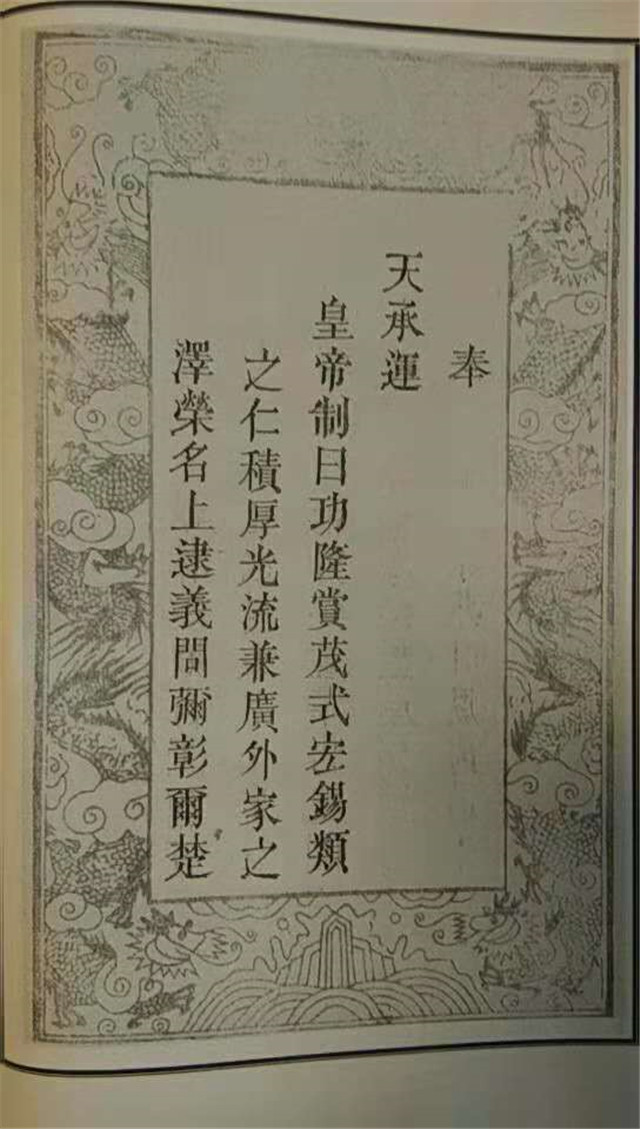 奉
天承運
皇帝制曰功隆賞茂式宏錫類
之仁積厚光流兼廣外家之
澤榮名上逮義問彌彰爾楚